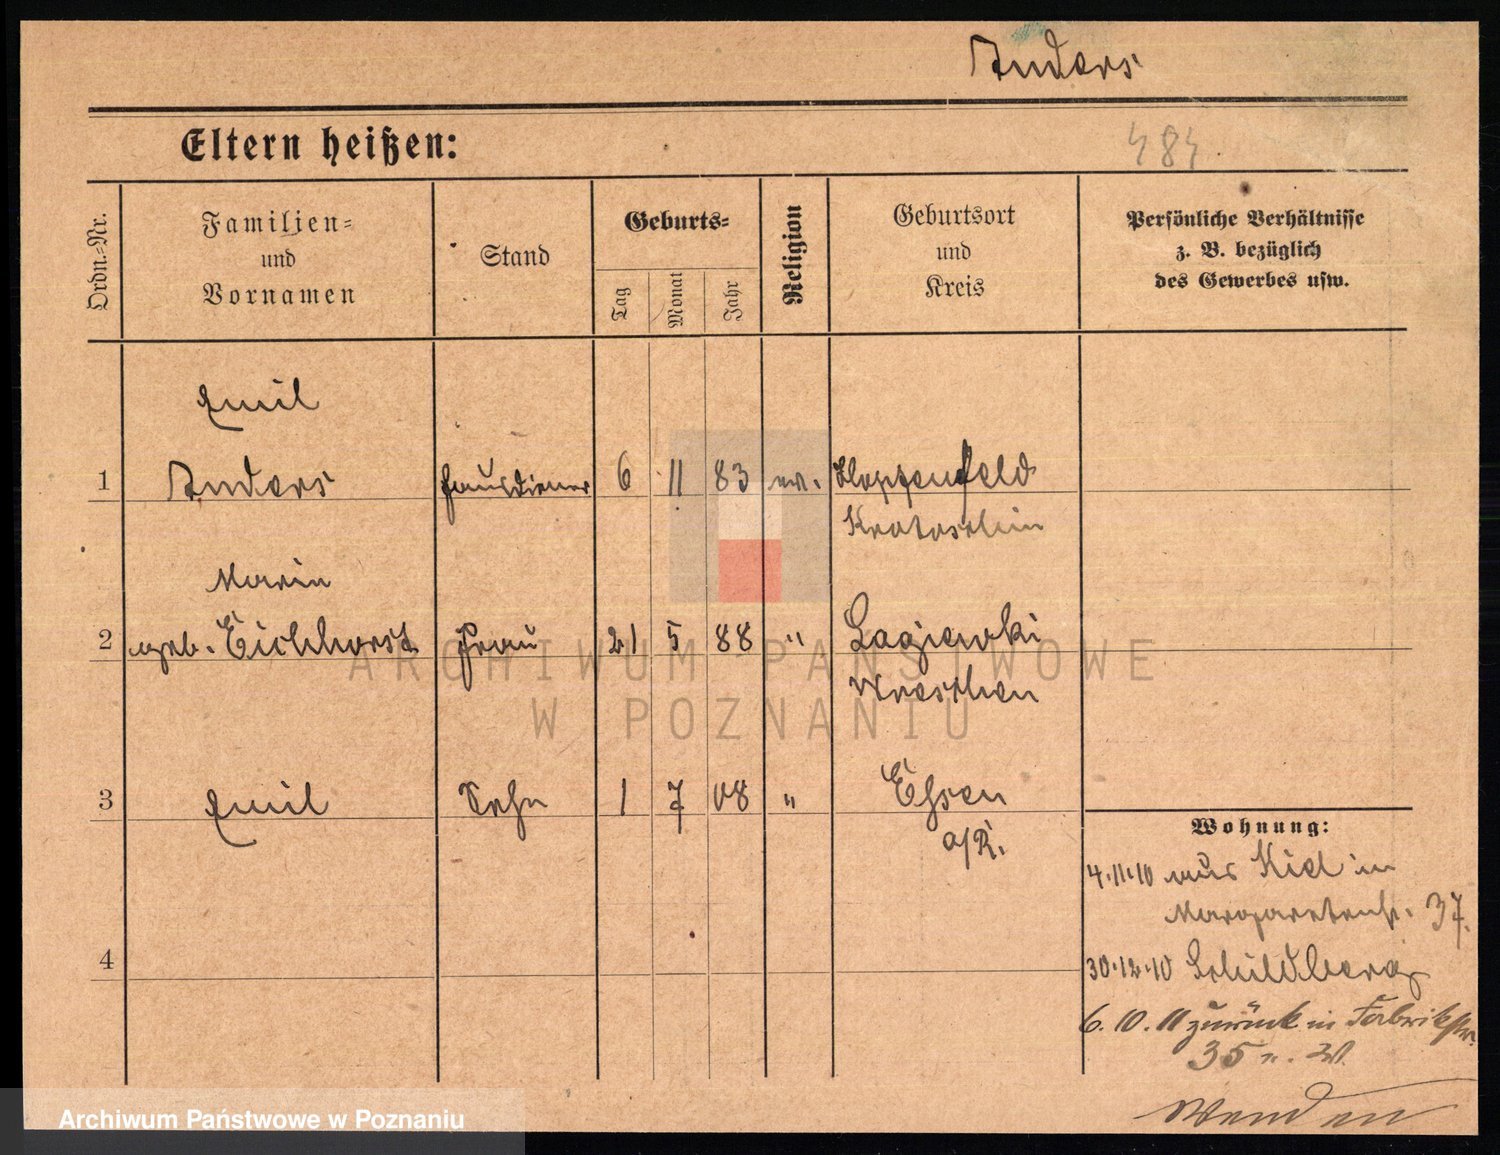 Anders
Eltern heißen:
484.
Ordn.=Nr.
Familien=
und
Vornamen
Stand
Geburts=
Tag
Monat
Jahr
Religion
Geburtsort
und
Kreis
Persönliche Verhältnisse
z. B. bezüglich
des Gewerbes usw.
Emil
1 Anders Hausdiener 6 11 83 ev. Hopfenfeld
Krotoschin
Marie
2 geb. Eichhorst Frau 21 5 88 " Lagiewki
Wreschen
3 Emil Sohn 1 7 08 " Essen
a/R.
4
Wohnung:
4.11.10 aus Kiel in
Margaretenstr. 37.
30.12.10 Schildberg
6.10.11 zurück in Fabrikstr.
35
Wenden
ARCHIWUM PAŃSTWOWE
W POZNANIU
Archiwum Państwowe w Poznaniu